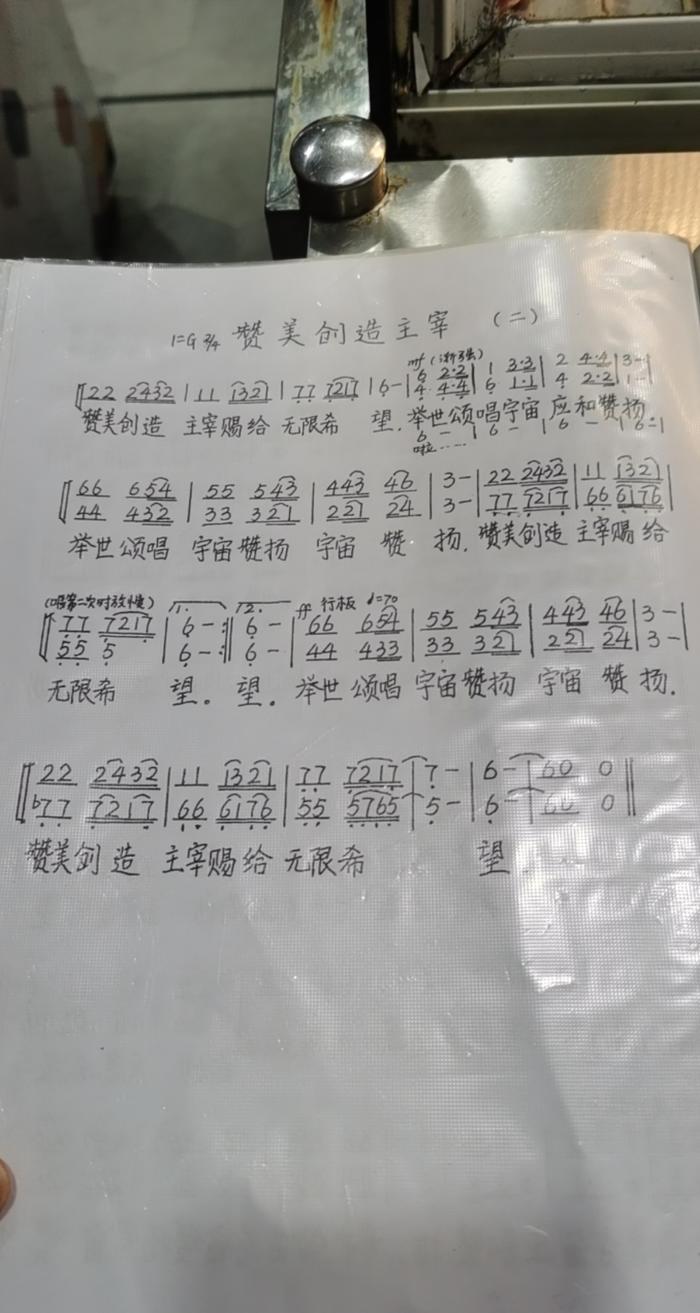 1=G 2/4 赞美创造主宰 (二)
mf (渐强)
6 2·2 | 1 3·3 | 2 4·4 | 3 - |
22 2432 | 11 1321 | 77 7217 | 6 - | 4 4·4 | 6 1·1 | 4 2·2 | 1 - |
赞美创造 主宰赐给 无限希 望. 举世颂唱宇宙 应和赞扬.
6 - | 6 - | 6 - | 6 - |
啦……
66 654 | 55 543 | 443 46 | 3 - | 22 2432 | 11 1321 |
44 432 | 33 321 | 221 24 | 3 - | 77 7217 | 66 6176 |
举世颂唱 宇宙赞扬 宇宙 赞 扬. 赞美创造 主宰赐给
(唱第二次时放慢) 1. 2. ff 行板 ♩=70
77 7217 | 6 - :|| 6 - | 66 654 | 55 543 | 443 46 | 3 - |
55 5 | 6 - :|| 6 - | 44 433 | 33 321 | 221 24 | 3 - |
无限希 望。 望。 举世颂唱 宇宙赞扬 宇宙 赞 扬.
22 2432 | 11 1321 | 77 7217 | 7 - | 6 - | 60 0 ||
b77 7217 | 66 6176 | 55 5765 | 5 - | 6 - | 60 0 ||
赞美创造 主宰赐给 无限希 望